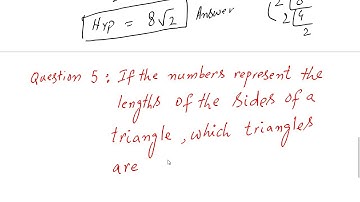 Hyp = 8√2 Answer
2 8
2 4
2
Question 5: If the numbers represent the
lengths of the sides of a
triangle, which triangles
are